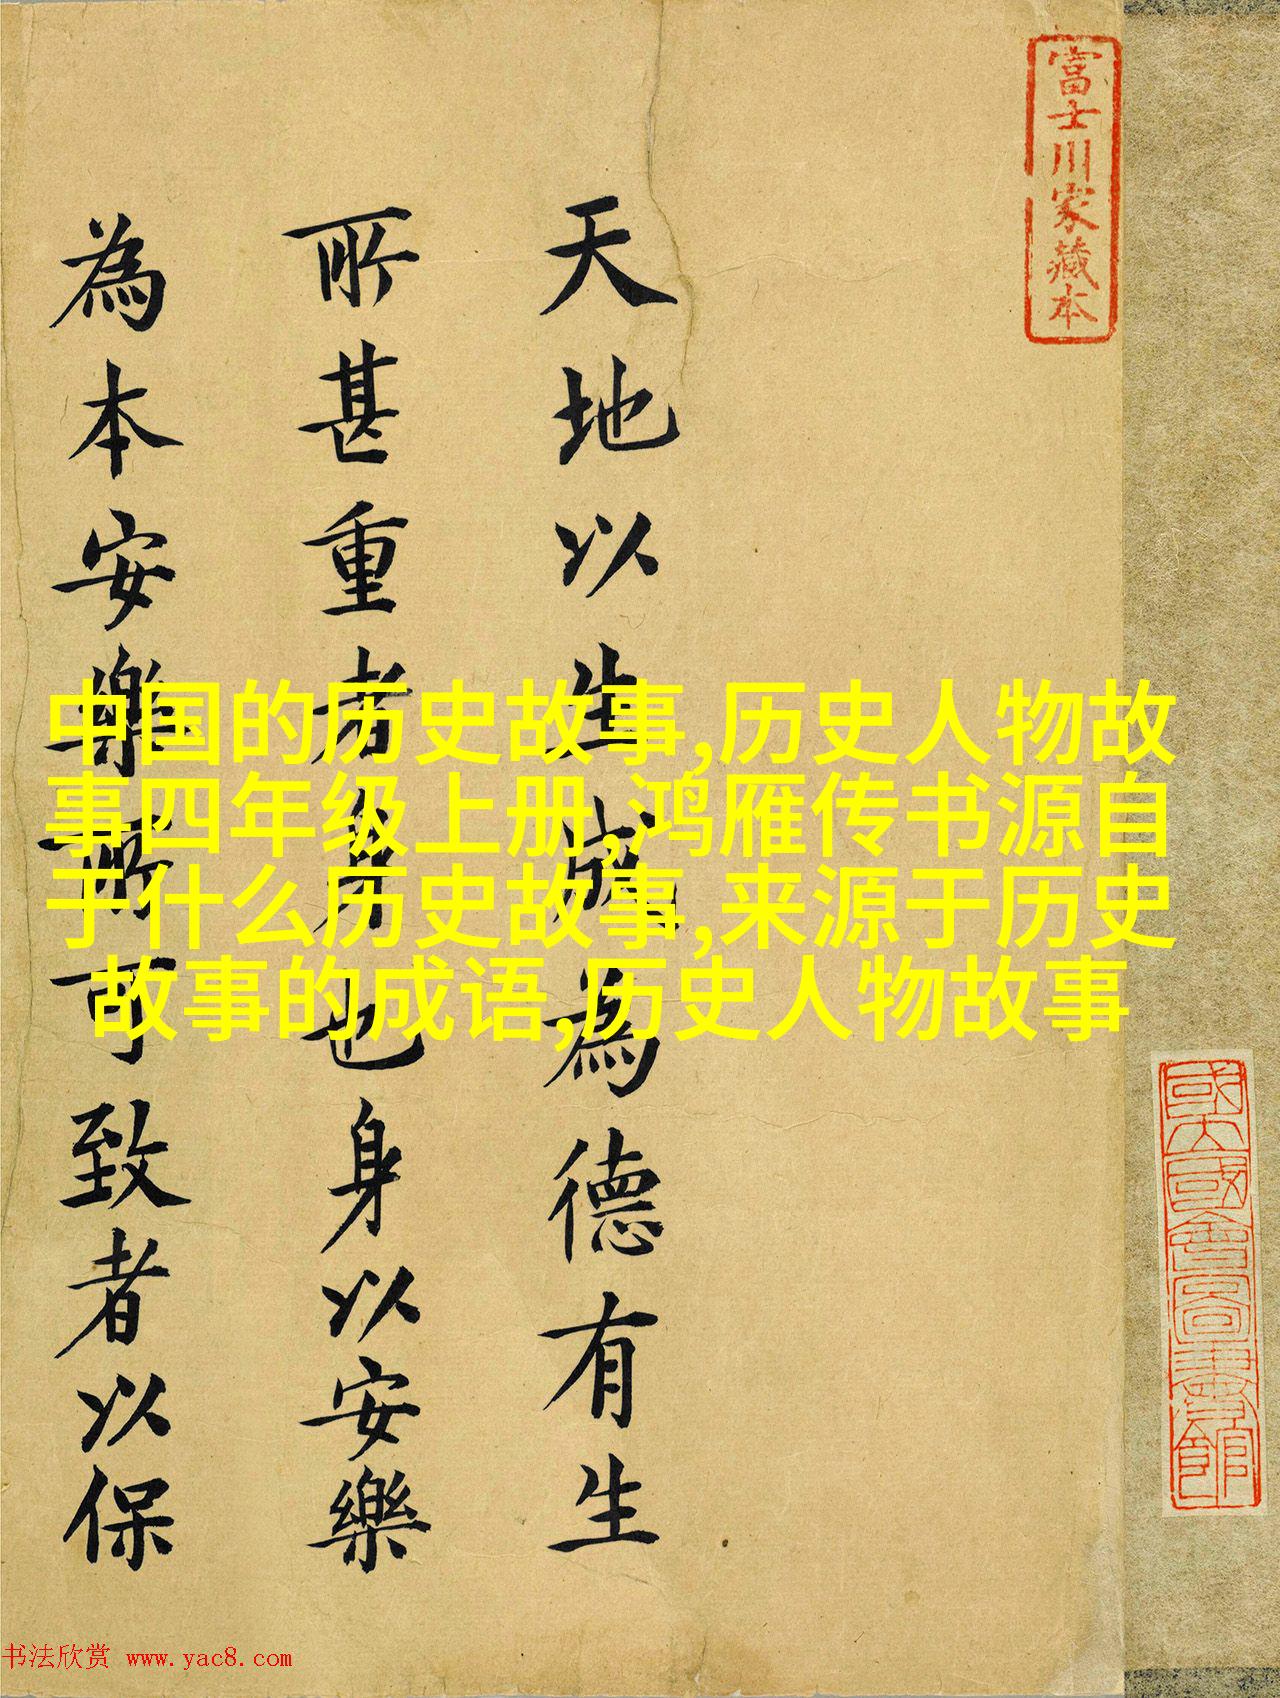 富士川家藏本
天地以生成為德有生
所甚重者身也身以安樂
為本安樂所可致者以保
中国的历史故事,历史人物故
事四年级上册,鸿雁传书源自
于什么历史故事,来源于历史
故事的成语,历史人物故事
书法欣赏 www.yac8.com